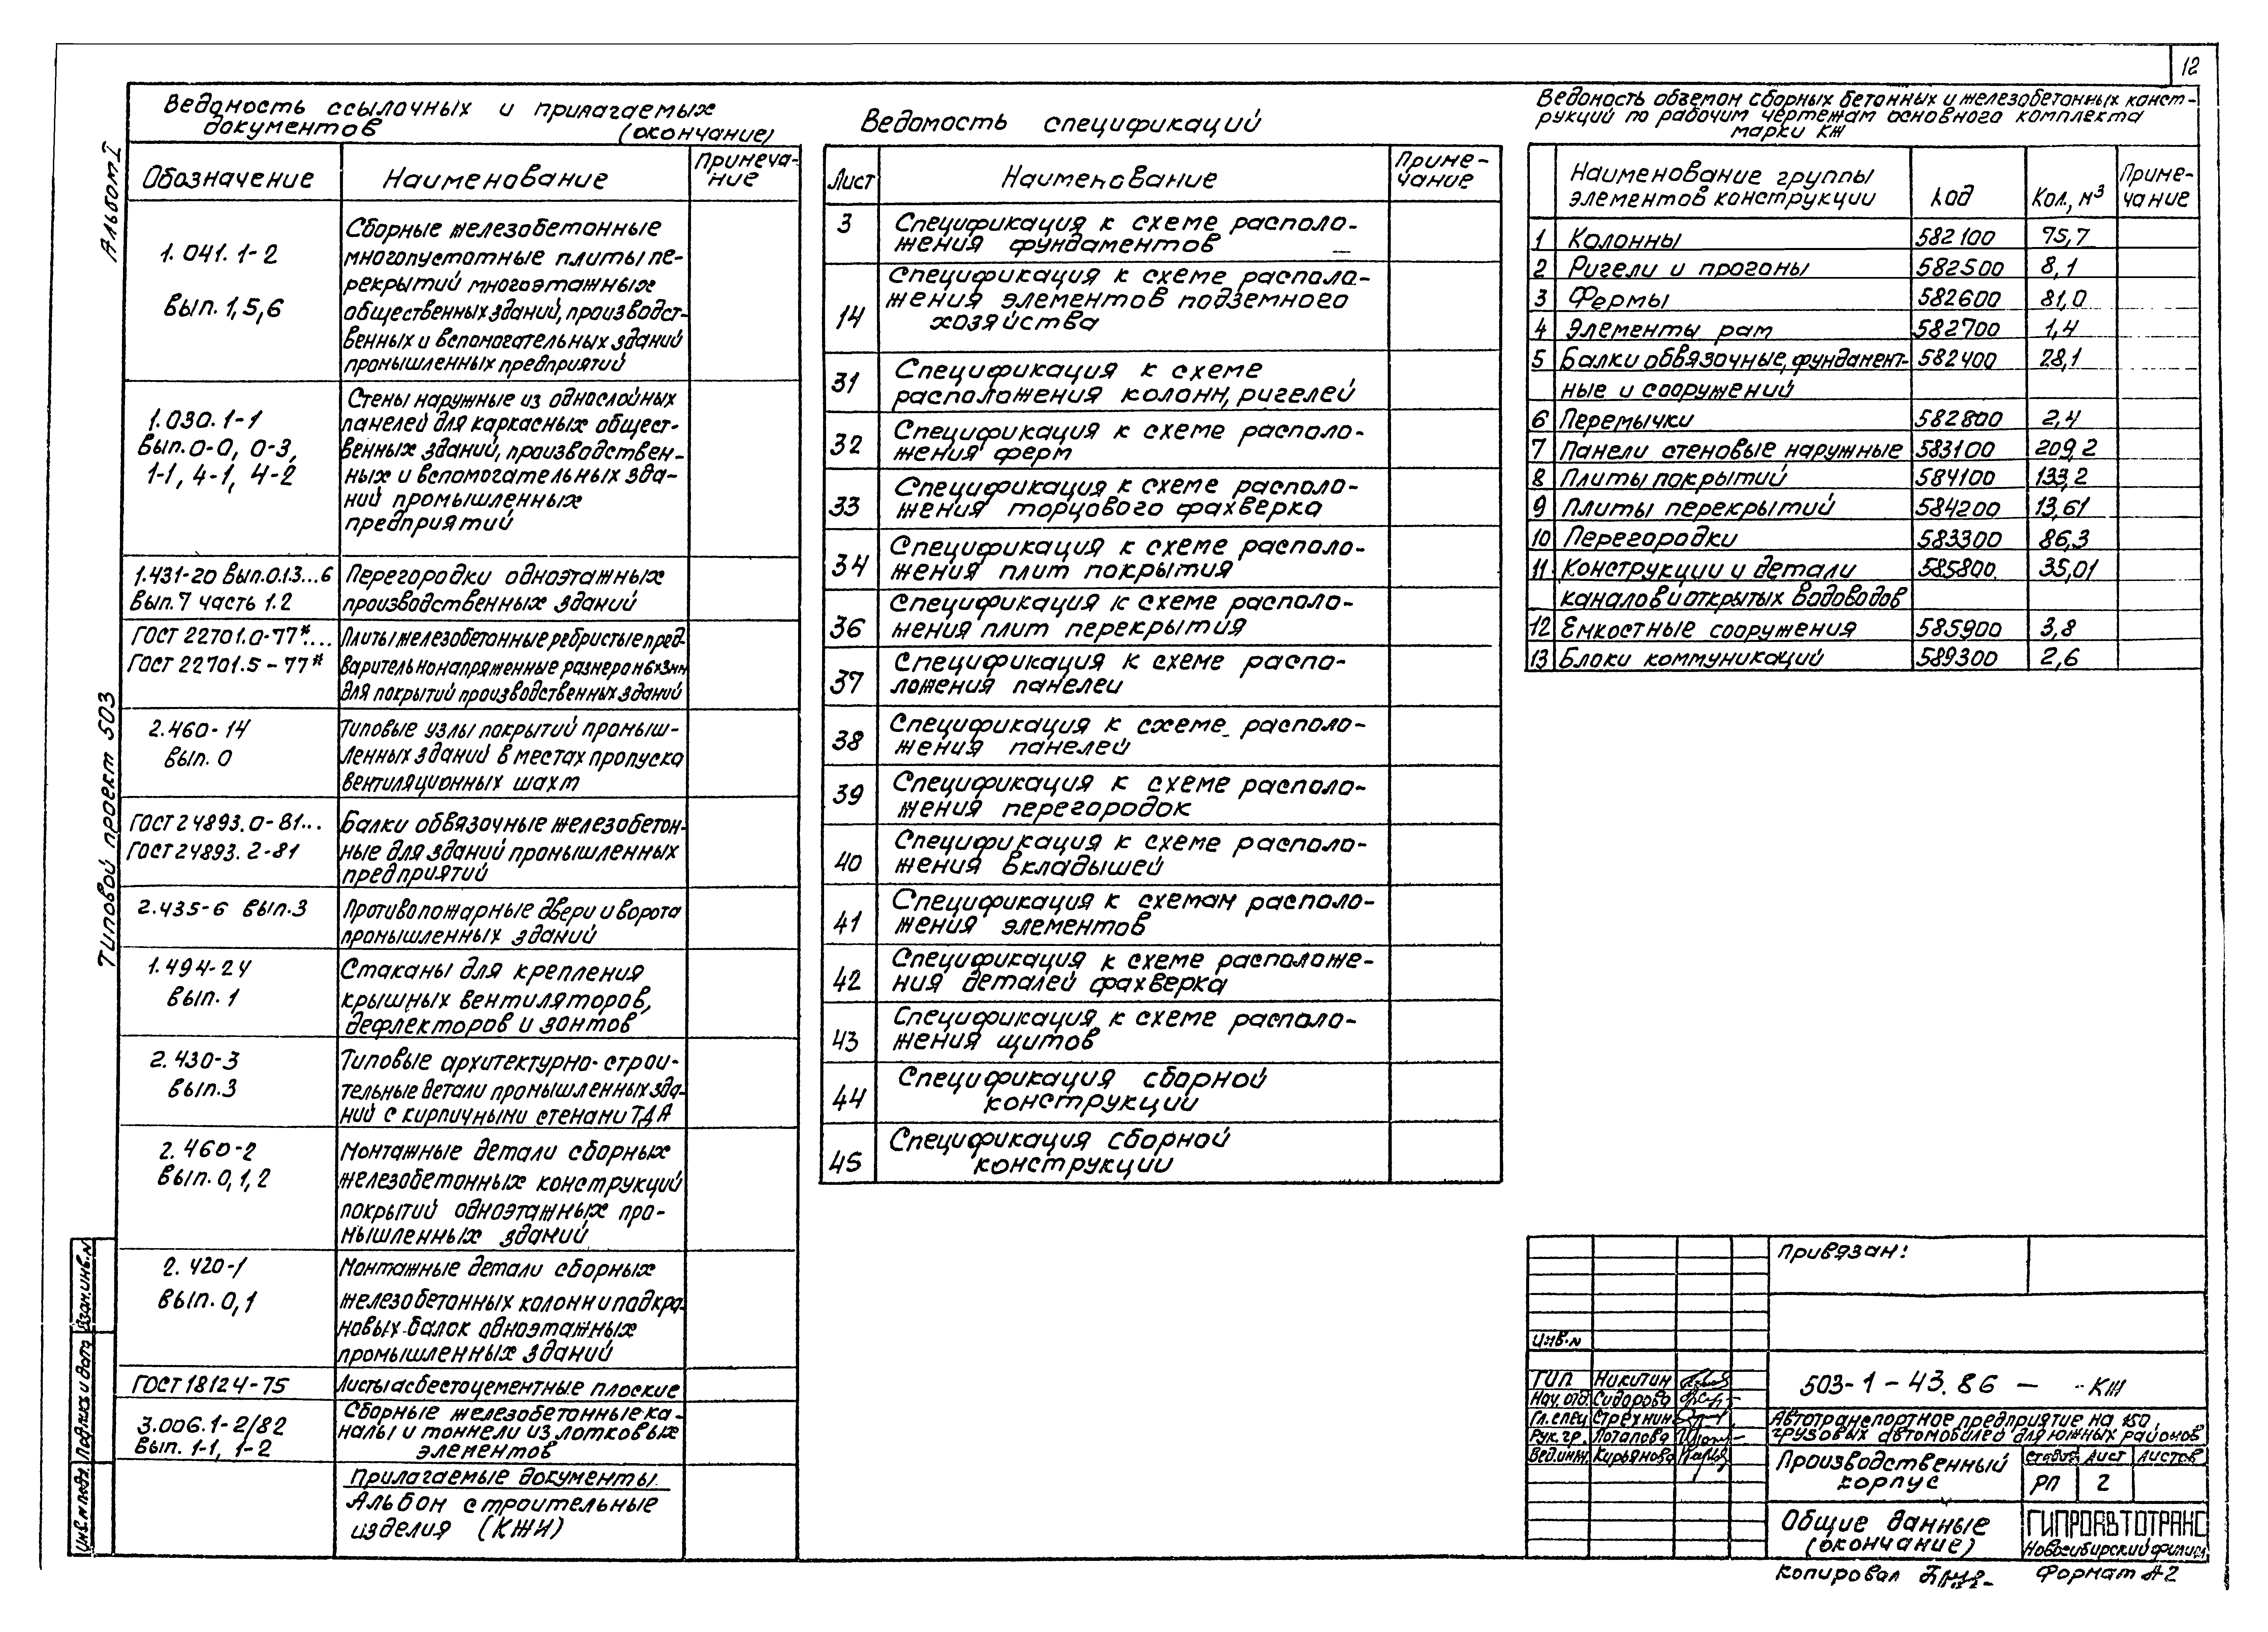 12
Альбом I
Типовой проект 503
Ведомость ссылочных и прилагаемых
документов (окончание)
Обозначение Наименование Примеча-
ние
1.041.1-2
Вып. 1,5,6
Сборные железобетонные
многопустотные плиты пе-
рекрытий многоэтажных
общественных зданий, производст-
венных и вспомогательных зданий
промышленных предприятий
1.030.1-1
Вып. 0-0, 0-3,
1-1, 4-1, 4-2
Стены наружные из однослойных
панелей для каркасных общест-
венных зданий, производствен-
ных и вспомогательных зда-
ний промышленных
предприятий
1.431-20 вып.0.13...6
Вып. 7 часть 1.2
Перегородки одноэтажных
производственных зданий
ГОСТ 22701.0-77*...
ГОСТ 22701.5-77*
Плиты железобетонные ребристые пред-
варительно напряженные размером 6х3мм
для покрытий производственных зданий
2.460-14
вып. 0
Типовые узлы покрытий промыш-
ленных зданий в местах пропуска
вентиляционных шахт
ГОСТ 24893.0-81...
ГОСТ 24893.2-81
Балки обвязочные железобетон-
ные для зданий промышленных
предприятий
2.435-6 вып.3
Противопожарные двери и ворота
промышленных зданий
1.494-24
вып. 1
Стаканы для крепления
крышных вентиляторов,
дефлекторов и зонтов
2.430-3
вып.3
Типовые архитектурно-строи-
тельные детали промышленных зда-
ний с кирпичными стенами ТДА
2.460-2
вып. 0,1,2
Монтажные детали сборных
железобетонных конструкций
покрытий одноэтажных про-
мышленных зданий
2.420-1
вып. 0,1
Монтажные детали сборных
железобетонных колонн и подкра-
новых балок одноэтажных
промышленных зданий
ГОСТ 18124-75
Листы асбестоцементные плоские
3.006.1-2/82
Вып. 1-1, 1-2
Сборные железобетонные ка-
налы и тоннели из лотковых
элементов
Прилагаемые документы
Альбом строительные
изделия (КЖИ)
Ведомость спецификаций
Лист Наименование Приме-
чание
3 Спецификация к схеме располо-
жения фундаментов
14 Спецификация к схеме располо-
жения элементов подземного
хозяйства
31 Спецификация к схеме
расположения колонн, ригелей
32 Спецификация к схеме располо-
жения ферм
33 Спецификация к схеме располо-
жения торцового фахверка
34 Спецификация к схеме располо-
жения плит покрытия
36 Спецификация к схеме располо-
жения плит перекрытия
37 Спецификация к схеме распо-
ложения панелей
38 Спецификация к схеме располо-
жения панелей
39 Спецификация к схеме располо-
жения перегородок
40 Спецификация к схеме располо-
жения вкладышей
41 Спецификация к схемам располо-
жения элементов
42 Спецификация к схеме расположе-
ния деталей фахверка
43 Спецификация к схеме располо-
жения щитов
44 Спецификация сборной
конструкции
45 Спецификация сборной
конструкции
Ведомость объемом сборных бетонных и железобетонных конст-
рукций по рабочим чертежам основного комплекта
марки КЖ
Наименование группы
элементов конструкции Код Кол., м³ Приме-
чание
1 Колонны 582100 75,7
2 Ригели и прогоны 582500 8,1
3 Фермы 582600 81,0
4 Элементы рам 582700 1,4
5 Балки обвязочные, фундамент- 582400 28,1
ные и сооружений
6 Перемычки 582800 2,4
7 Панели стеновые наружные 583100 209,2
8 Плиты покрытий 584100 133,2
9 Плиты перекрытий 584200 13,61
10 Перегородки 583300 86,3
11 Конструкции и детали 585800 35,01
каналов и открытых водоводов
12 Емкостные сооружения 585900 3,8
13 Блоки коммуникаций 589300 2,6
Взам.инв.N
Подпись и дата
Инв.N подл.
Привязан:
Инв.N
ГИП Никитин
Нач.отд. Сидорова
Гл.спец Стрехнин
Рук.гр. Потапова
Вед.инж. Кирьянова
503-1-43.86 - -КЖ
Автотранспортное предприятие на 150
грузовых автомобилей для южных районов
Производственный
корпус
Стадия Лист Листов
РП 2
Общие данные
(окончание)
ГИПРОАВТОТРАНС
Новосибирский филиал
Копировал
Формат А2